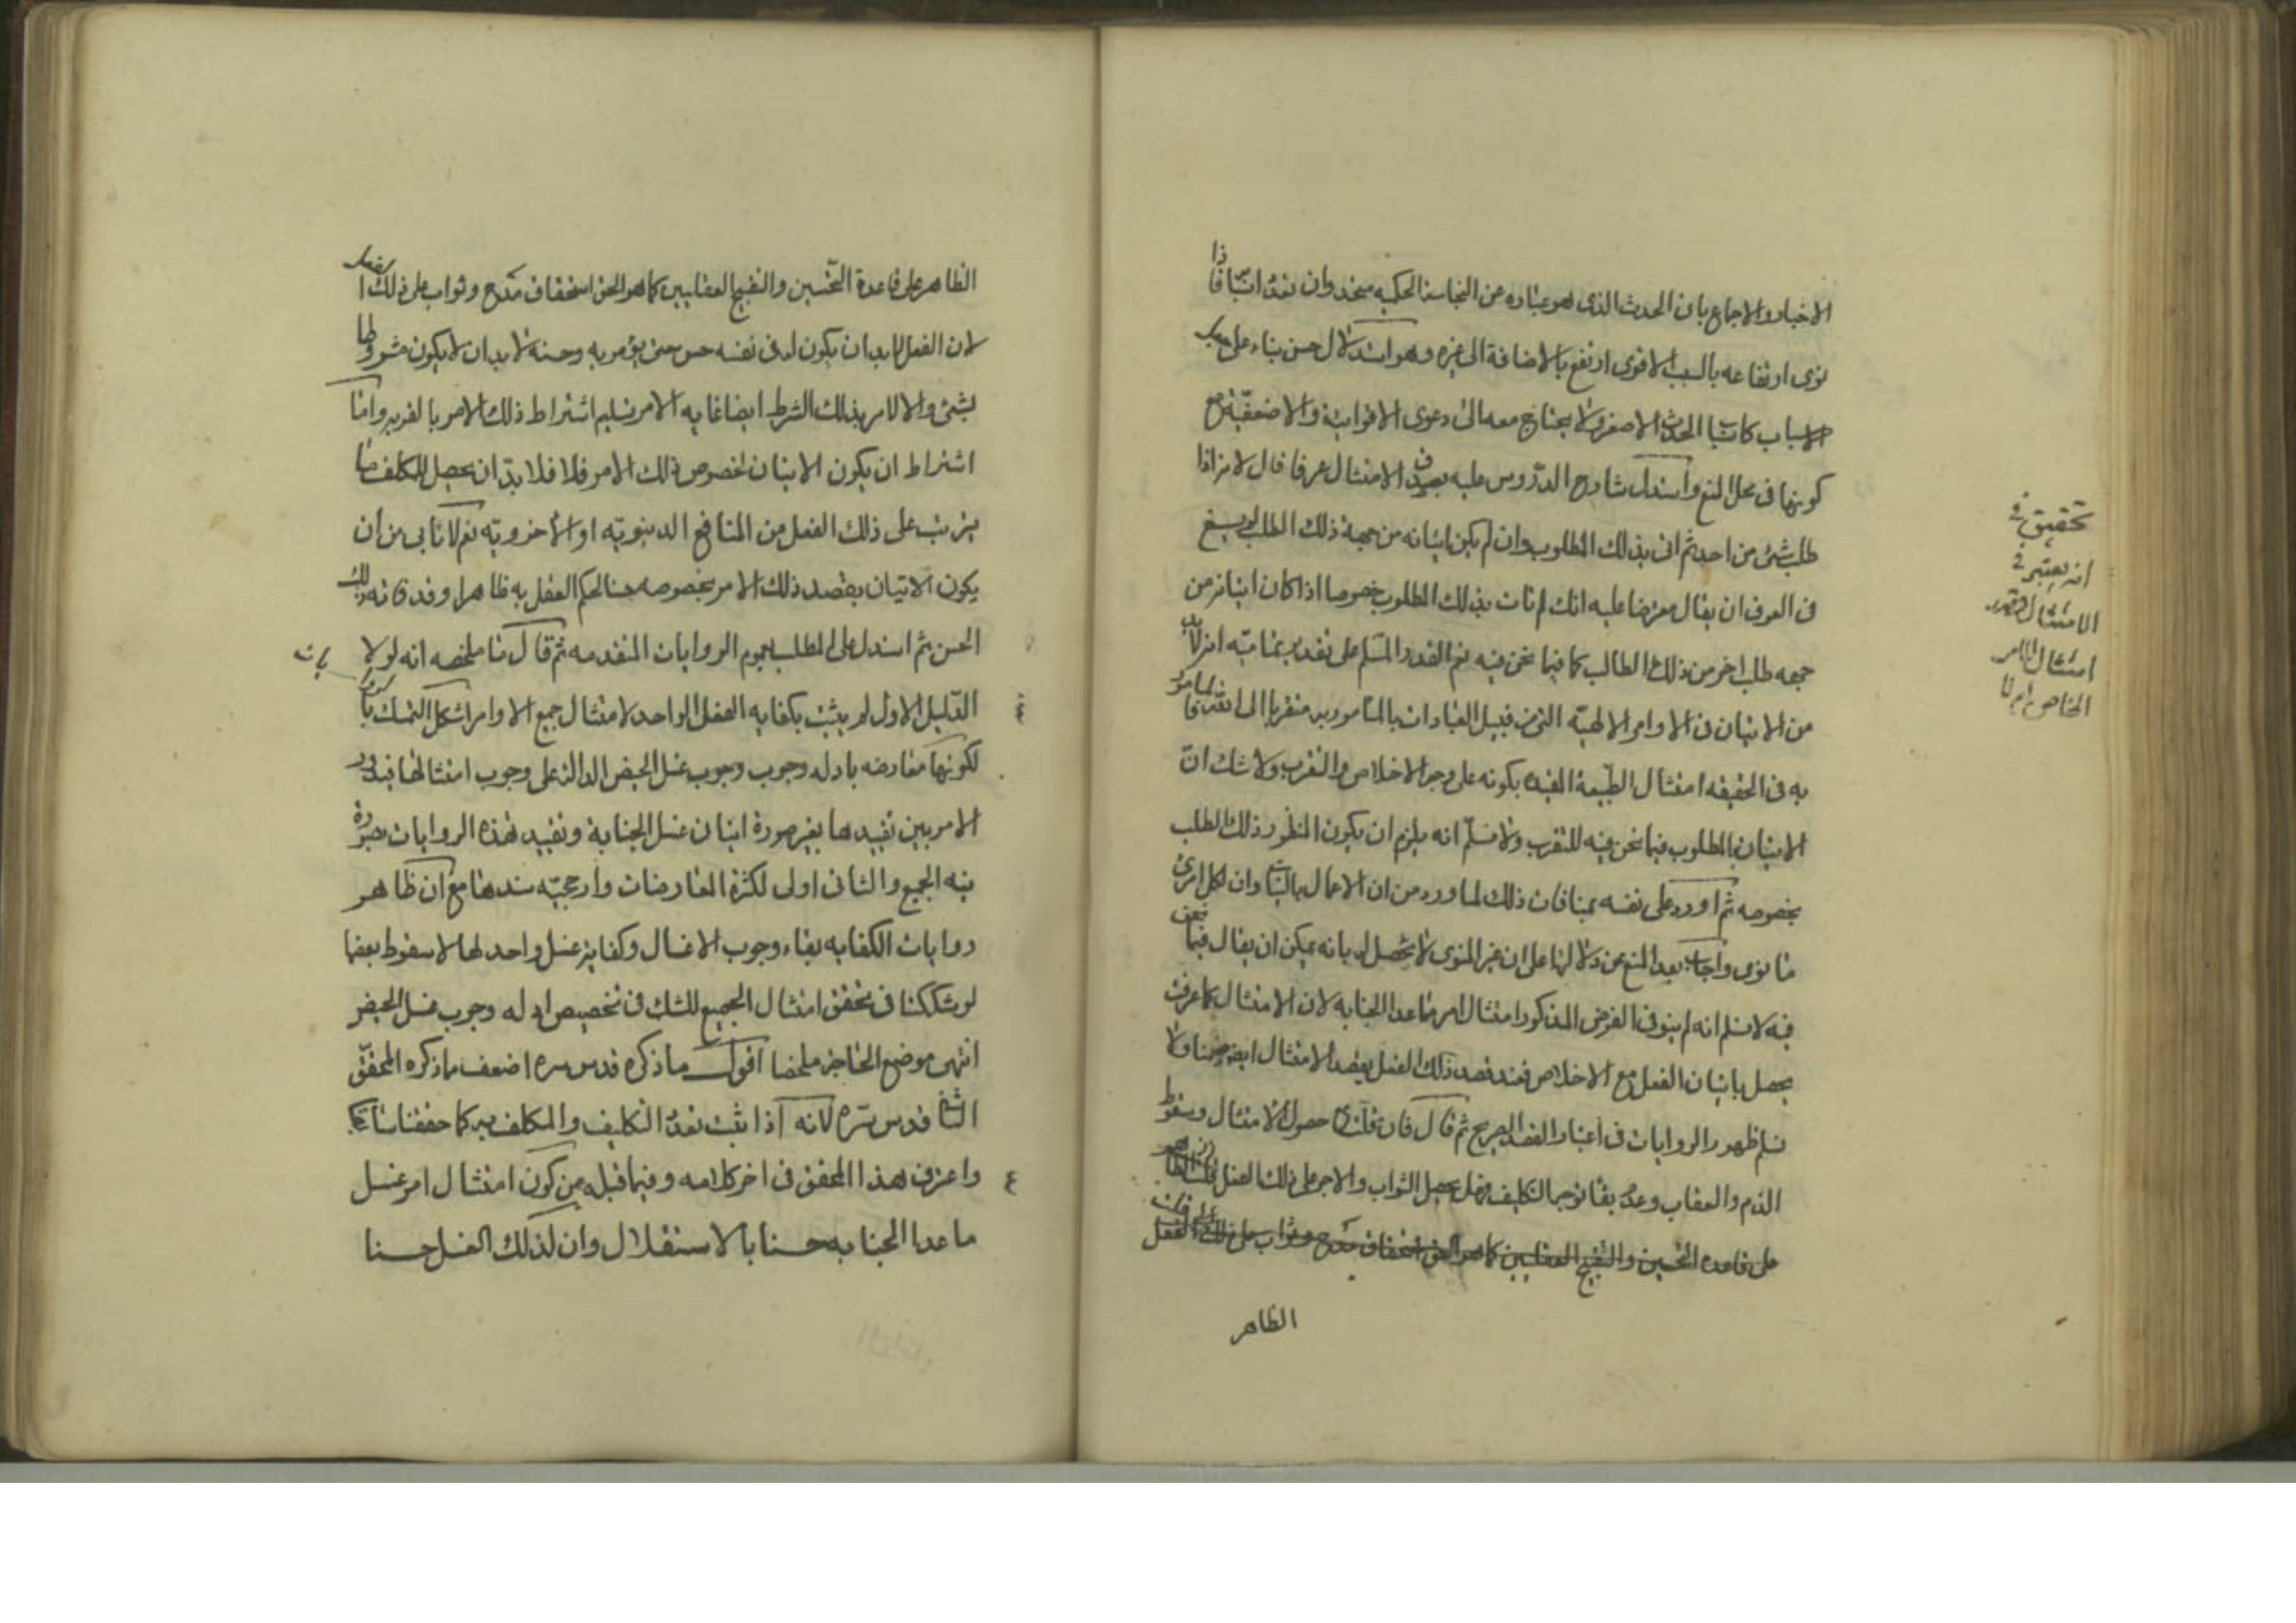 الاخبار والاجماع بان الحدث الذى هو عبارة عن النجاسة الحكميه متحد وان تعدد اسبابه فاذا
نوى ارتفاعه بالسبب الاقوى ارتفع بالاضافة الى غيره وهو استدلال حسن بناء على
الاسباب كاسباب الحدث الاصغر ولا يحتاج معه الى دعوى الاقوائية والاضعفية مع
كونها فى محل المنع واستدل شارح الدروس عليه بصدق الامتثال عرفا قال لانه اذا
طلب شئ من احد ثم اتى بذلك المطلوب وان لم يكن اتيانه من جهة ذلك الطلب لا يسع
فى العرف ان يقال معرضا عليه انك لم تات بذلك المطلوب خصوصا اذا كان اتيانه من
جهه طلب اخر من ذلك الطالب كما فيما نحن فيه نعم القدر المسلم على تقدير تماميته انه لابد
من الاتيان فى الاوامر الالهيه التى من قبيل العبادات بالمأمور به متقربا الى الله تعالى فالمامور
به فى الحقيقه امتثال الطبيعة المقيده بكونه على وجه الاخلاص والتقرب ولا شك ان
الاتيان بالمطلوب فيما نحن فيه للتقرب ولا نسلم انه يلزم ان يكون المنظور ذلك الطلب
بخصوصه ثم اورد على نفسه بمنافات ذلك لما ورد من ان الاعمال بالنيات وان لكل امرئ
ما نوى واجاب بعد المنع عن دلالتها على ان غير المنوى لا يحصل له بانه يمكن ان يقال فيما نحن
فيه لا نسلم انه لم ينو فى الفرض المذكور امتثال امر ما عدا الجنابه لان الامتثال كما عرفت
يحصل باتيان الفعل مع الاخلاص فعند قصد ذلك الفعل يقصد الامتثال ايضا ضمنا ولا
نسلم ظهور الروايات فى اعتبار القصد الصريح ثم قال فان قلت حصول الامتثال وسقوط
الذم والعقاب وعدم بقاء توجه التكليف فهل يحصل الثواب والاجر على ذلك الفعل قلت
على قاعدة التحسين والتقبيح العقليين كما هو الحق استحقاق مدح وثواب على ذلك الفعل
الظاهر
تحقيق فى
انه يعتبر فى
الامتثال قصد
امتثال الامر
الخاص ام لا
الظاهر على قاعدة التحسين والتقبيح العقليين كما هو الحق استحقاق مدح وثواب على ذلك الفعل
لان الفعل لابد ان يكون له فى نفسه حسن حتى يؤمر به وحسنه لابد ان لا يكون مشروطا
بشئ والا لامر بذلك الشرط ايضا غايه الامر تسليم اشتراط ذلك الامر بالقربه واما
اشتراط ان يكون الاتيان لخصوص ذلك الامر فلا فلا بد ان يحصل للمكلف ما
يترتب على ذلك الفعل من المنافع الدنيويه او الاخرويه نعم لا نابى من ان
يكون الاتيان بقصد ذلك الامر بخصوصه حسنا لحكم العقل به ظاهرا وقد فاته ذلك
الحسن ثم استدل على المطلب بعموم الروايات المتقدمه ثم قال ما ملخصه انه لولا
الدليل الاول لم يثبت بكفايه الغسل الواحد لامتثال جميع الاوامر اشكل التمسك بالروايات
لكونها معارضه بادله وجوب وجوب غسل الحيض الداله على وجوب امتثالها فيدور
الامر بين تقييدها بغير صورة اتيان غسل الجنابة وتقييد هذه الروايات بصورة
نيه الجميع والثانى اولى لكثرة المعارضات وارجحيه سندها مع ان ظاهر
روايات الكفايه بقاء وجوب الاغسال وكفاية غسل واحد لها لا سقوط بعضها
لو شككنا فى تحقق امتثال الجميع للشك فى تخصيص ادله وجوب غسل الحيض
انتهى موضع الحاجة ملخصا اقول ما ذكره قدس سره اضعف مما ذكره المحقق
الثانى قدس سره لانه اذا ثبت تعدد التكليف والمكلف به كما حققنا سابقا
واعترف هذا المحقق فى اخر كلامه وفيما قبله من كون امتثال امر غسل
ما عدا الجنابه حسنا بالاستقلال وان لذلك الغسل حسنا